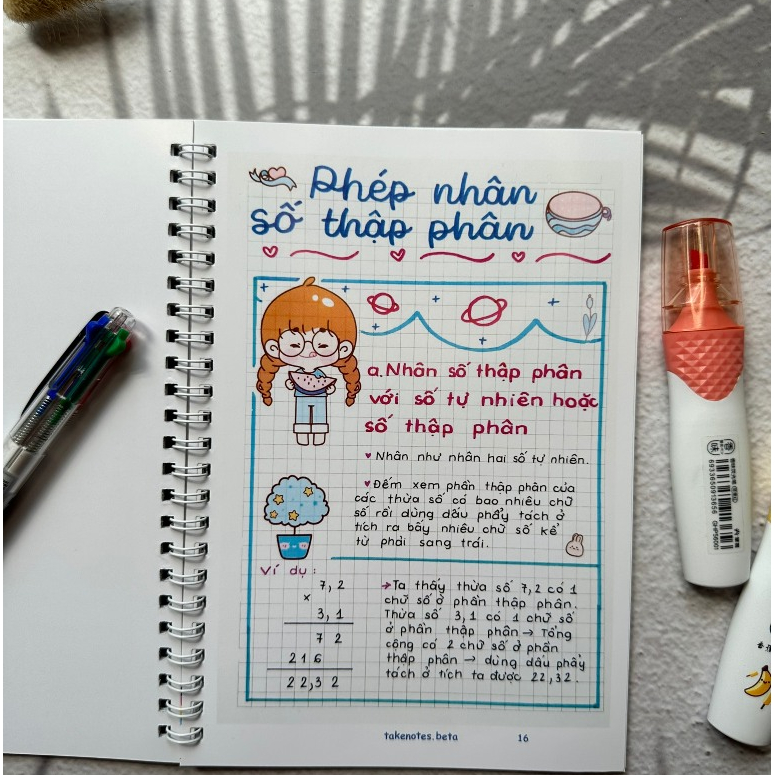 Phép nhân
số thập phân
a. Nhân số thập phân
với số tự nhiên hoặc
số thập phân
♥ Nhân như nhân hai số tự nhiên.
♥ Đếm xem phần thập phân của
các thừa số có bao nhiêu chữ
số rồi dùng dấu phẩy tách ở
tích ra bấy nhiêu chữ số kể
từ phải sang trái.
Ví dụ:
7,2
×
3,1
7 2
2 1 6
2 2,3 2
→ Ta thấy thừa số 7,2 có 1
chữ số ở phần thập phân.
Thừa số 3,1 có 1 chữ số
ở phần thập phân → Tổng
cộng có 2 chữ số ở phần
thập phân → dùng dấu phẩy
tách ở tích ta được 22,32.
takenotes.beta 16
6933650930656